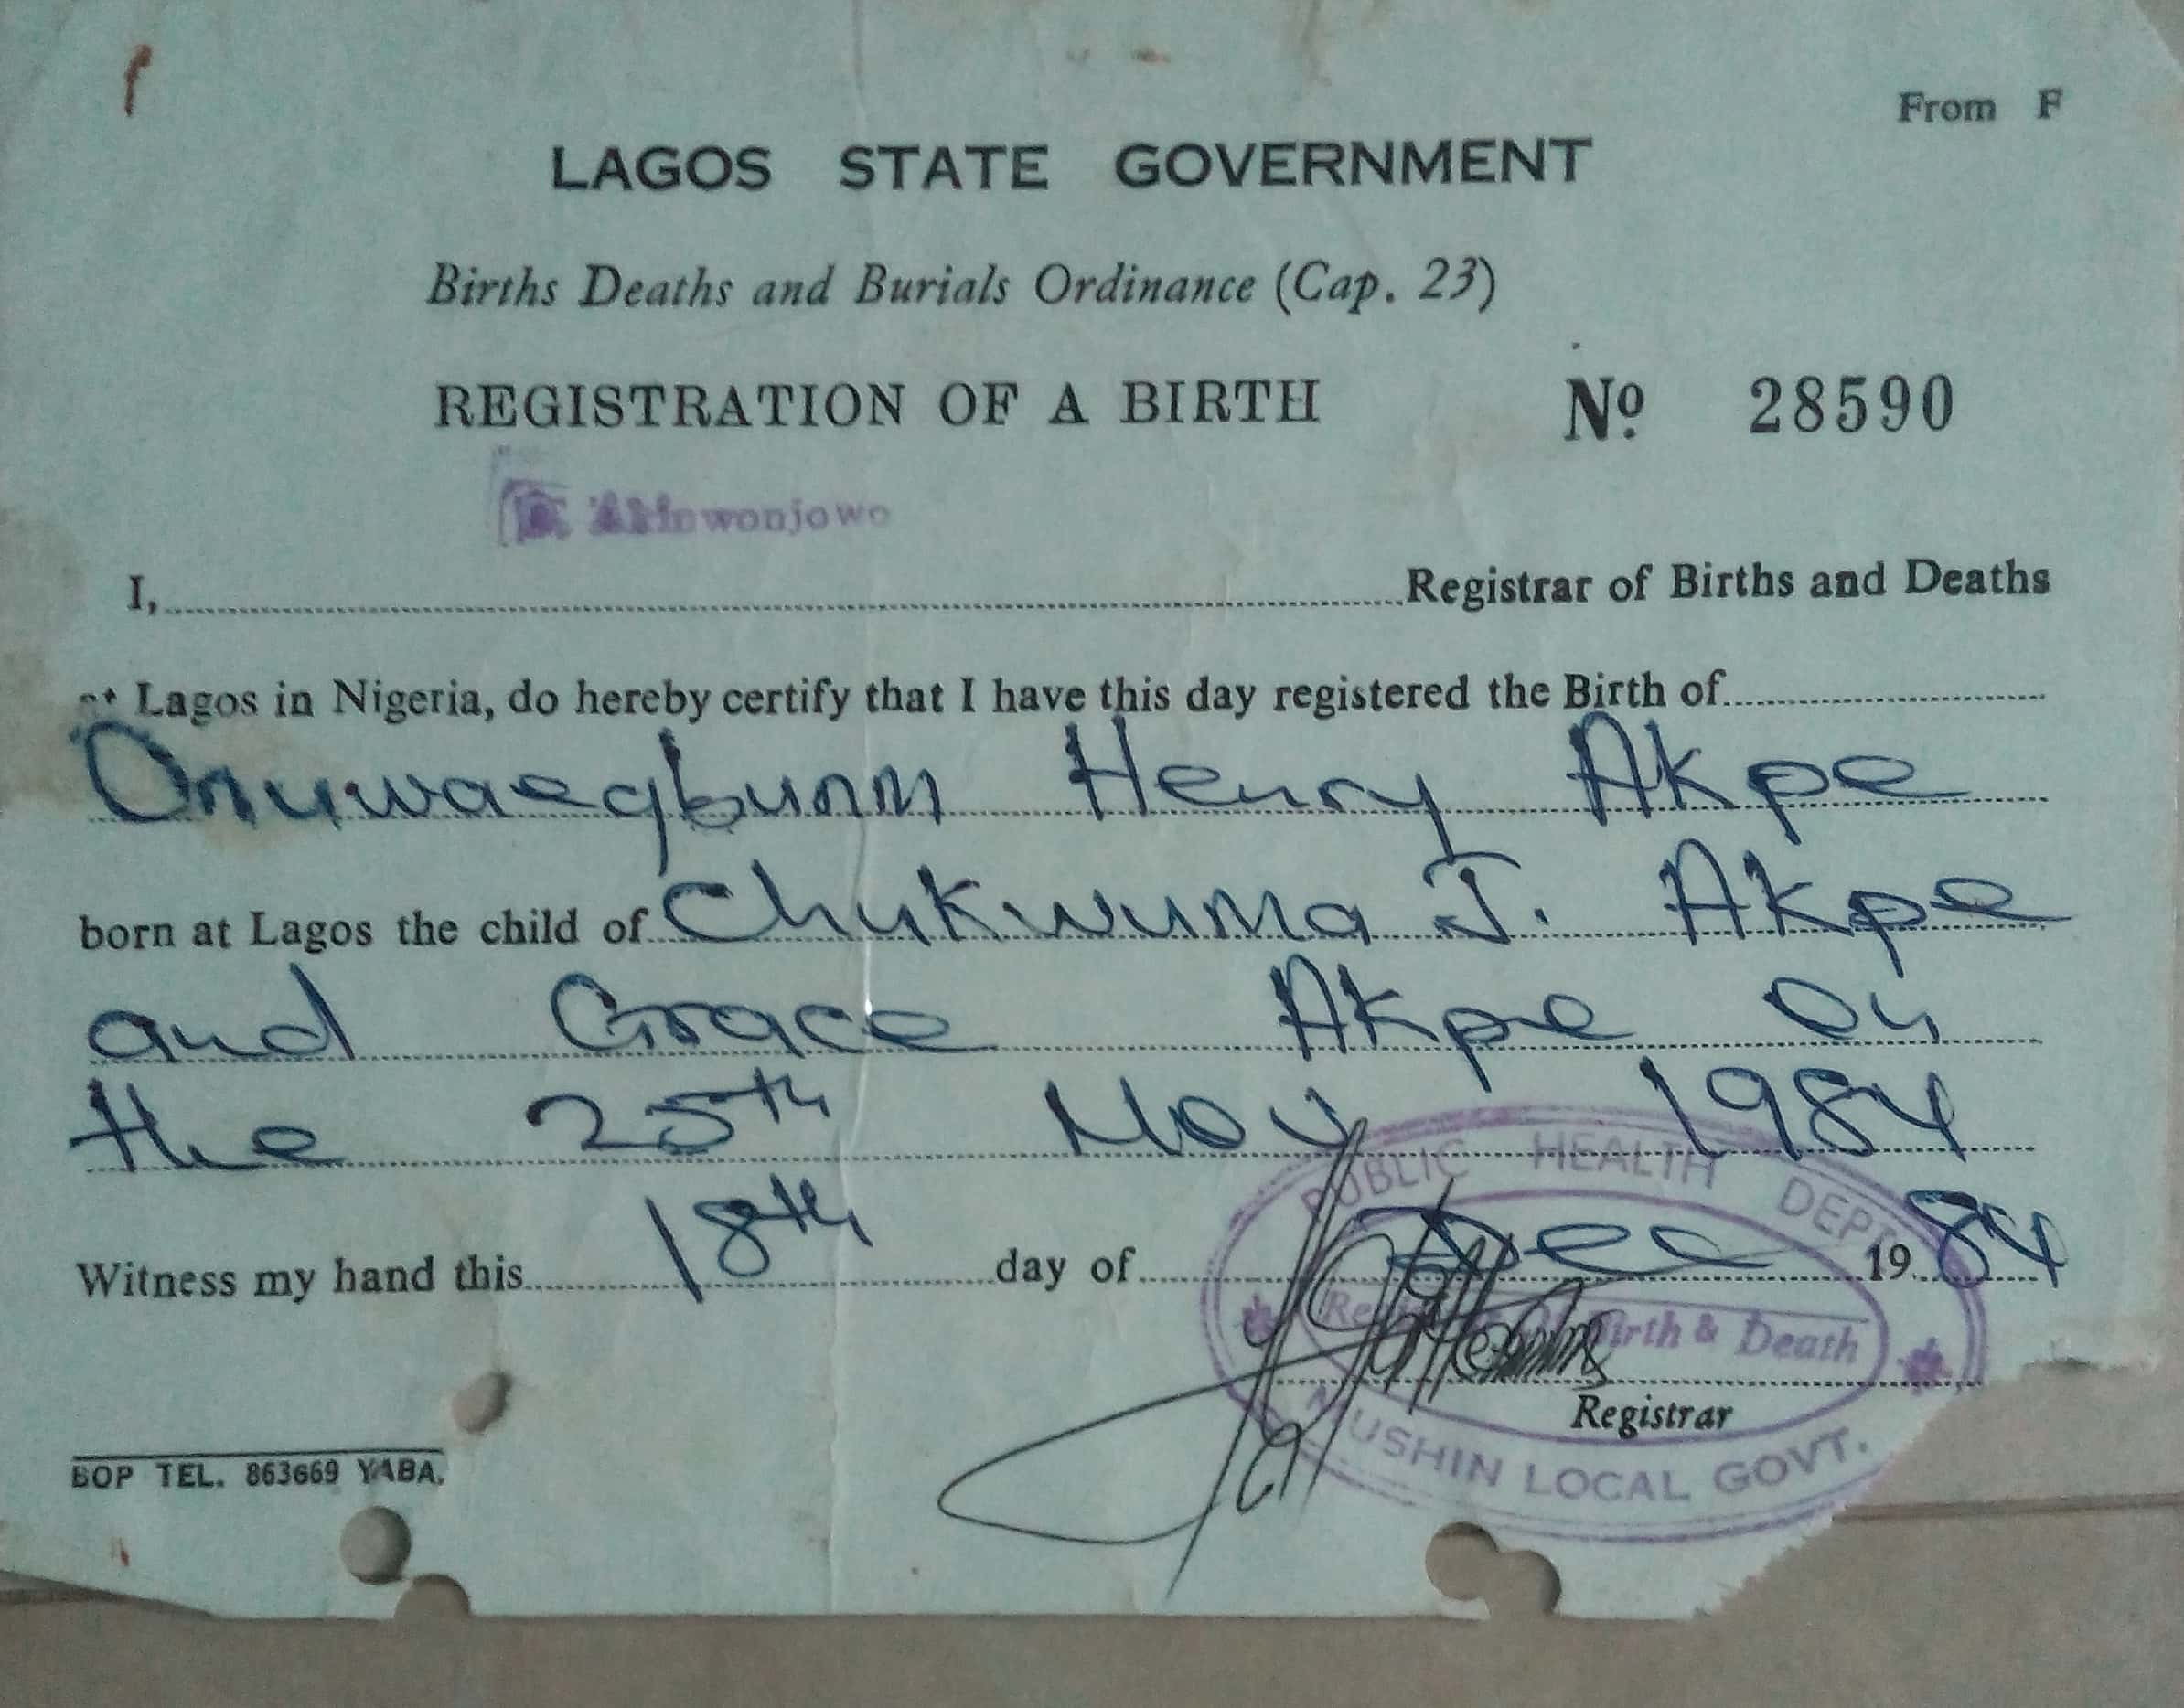 From F
LAGOS STATE GOVERNMENT
Births Deaths and Burials Ordinance (Cap. 23)
REGISTRATION OF A BIRTH No. 28590
Akinwonjowo
I,........Registrar of Births and Deaths
at Lagos in Nigeria, do hereby certify that I have this day registered the Birth of........
Onuwaegbunm Henry Akpe
born at Lagos the child of Chukwuma J. Akpe
and Grace Akpe on
the 25th Nov 1984
Witness my hand this 18th day of Dec 1984
PUBLIC HEALTH DEPT.
Birth & Death
Registrar
MUSHIN LOCAL GOVT.
BOP TEL. 863669 YABA.